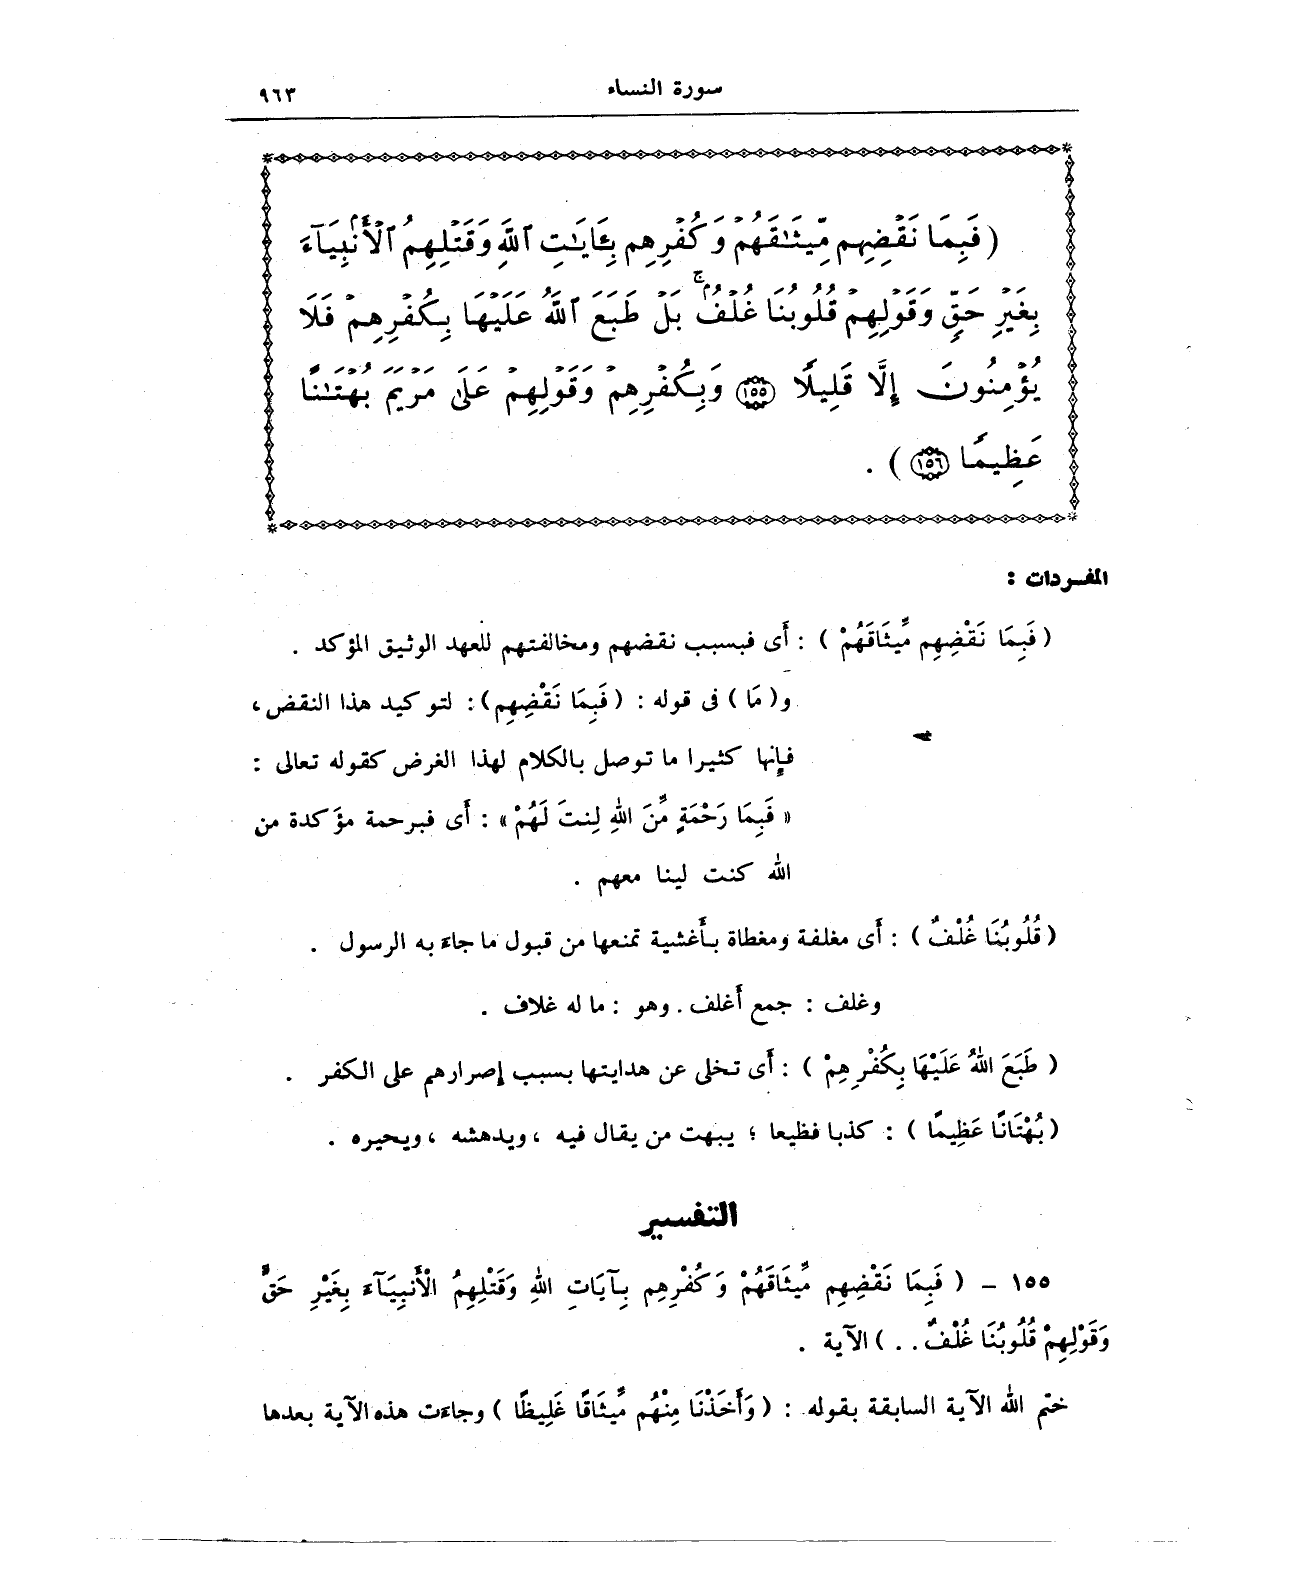 سورة النساء ٩٦٣
( فَبِمَا نَقْضِهِم مِّيثَـٰقَهُمْ وَكُفْرِهِم بِـَٔايَـٰتِ ٱللَّهِ وَقَتْلِهِمُ ٱلْأَنۢبِيَآءَ
بِغَيْرِ حَقٍّ وَقَوْلِهِمْ قُلُوبُنَا غُلْفُۢ ۚ بَلْ طَبَعَ ٱللَّهُ عَلَيْهَا بِكُفْرِهِمْ فَلَا
يُؤْمِنُونَ إِلَّا قَلِيلًا ١٥٥ وَبِكُفْرِهِمْ وَقَوْلِهِمْ عَلَىٰ مَرْيَمَ بُهْتَـٰنًا
عَظِيمًا ١٥٦ ) .
المفـردات :
( فَبِمَا نَقْضِهِم مِّيثَاقَهُمْ ) : أَى فبسبب نقضهم ومخالفتهم للعهد الوثيق المؤكد .
و( مَا ) فى قوله : ( فَبِمَا نَقْضِهِم ) : لتوكيد هذا النقض ،
فإِنها كثيرا ما توصل بالكلام لهذا الغرض كقوله تعالى :
« فَبِمَا رَحْمَةٍ مِّنَ اللهِ لِنتَ لَهُمْ » : أَى فبرحمة مؤكدة من
الله كنت لينا معهم .
( قُلُوبُنَا غُلْفٌ ) : أَى مغلفة ومغطاة بأَغشية تمنعها من قبول ما جاءَ به الرسول .
وغلف : جمع أَغلف . وهو : ما له غلاف .
( طَبَعَ اللهُ عَلَيْهَا بِكُفْرِهِمْ ) : أَى تخلى عن هدايتها بسبب إِصرارهم على الكفر .
( بُهْتَانًا عَظِيمًا ) : كذبا فظيعا ؛ يبهت من يقال فيه ، ويدهشه ، ويحيره .
التفسير
١٥٥ - ( فَبِمَا نَقْضِهِم مِّيثَاقَهُمْ وَكُفْرِهِم بِآيَاتِ اللهِ وَقَتْلِهِمُ الْأَنبِيَآءَ بِغَيْرِ حَقٍّ
وَقَوْلِهِمْ قُلُوبُنَا غُلْفٌ . . ) الآية .
ختم الله الآية السابقة بقوله : ( وَأَخَذْنَا مِنْهُم مِّيثَاقًا غَلِيظًا ) وجاءَت هذه الآية بعدها